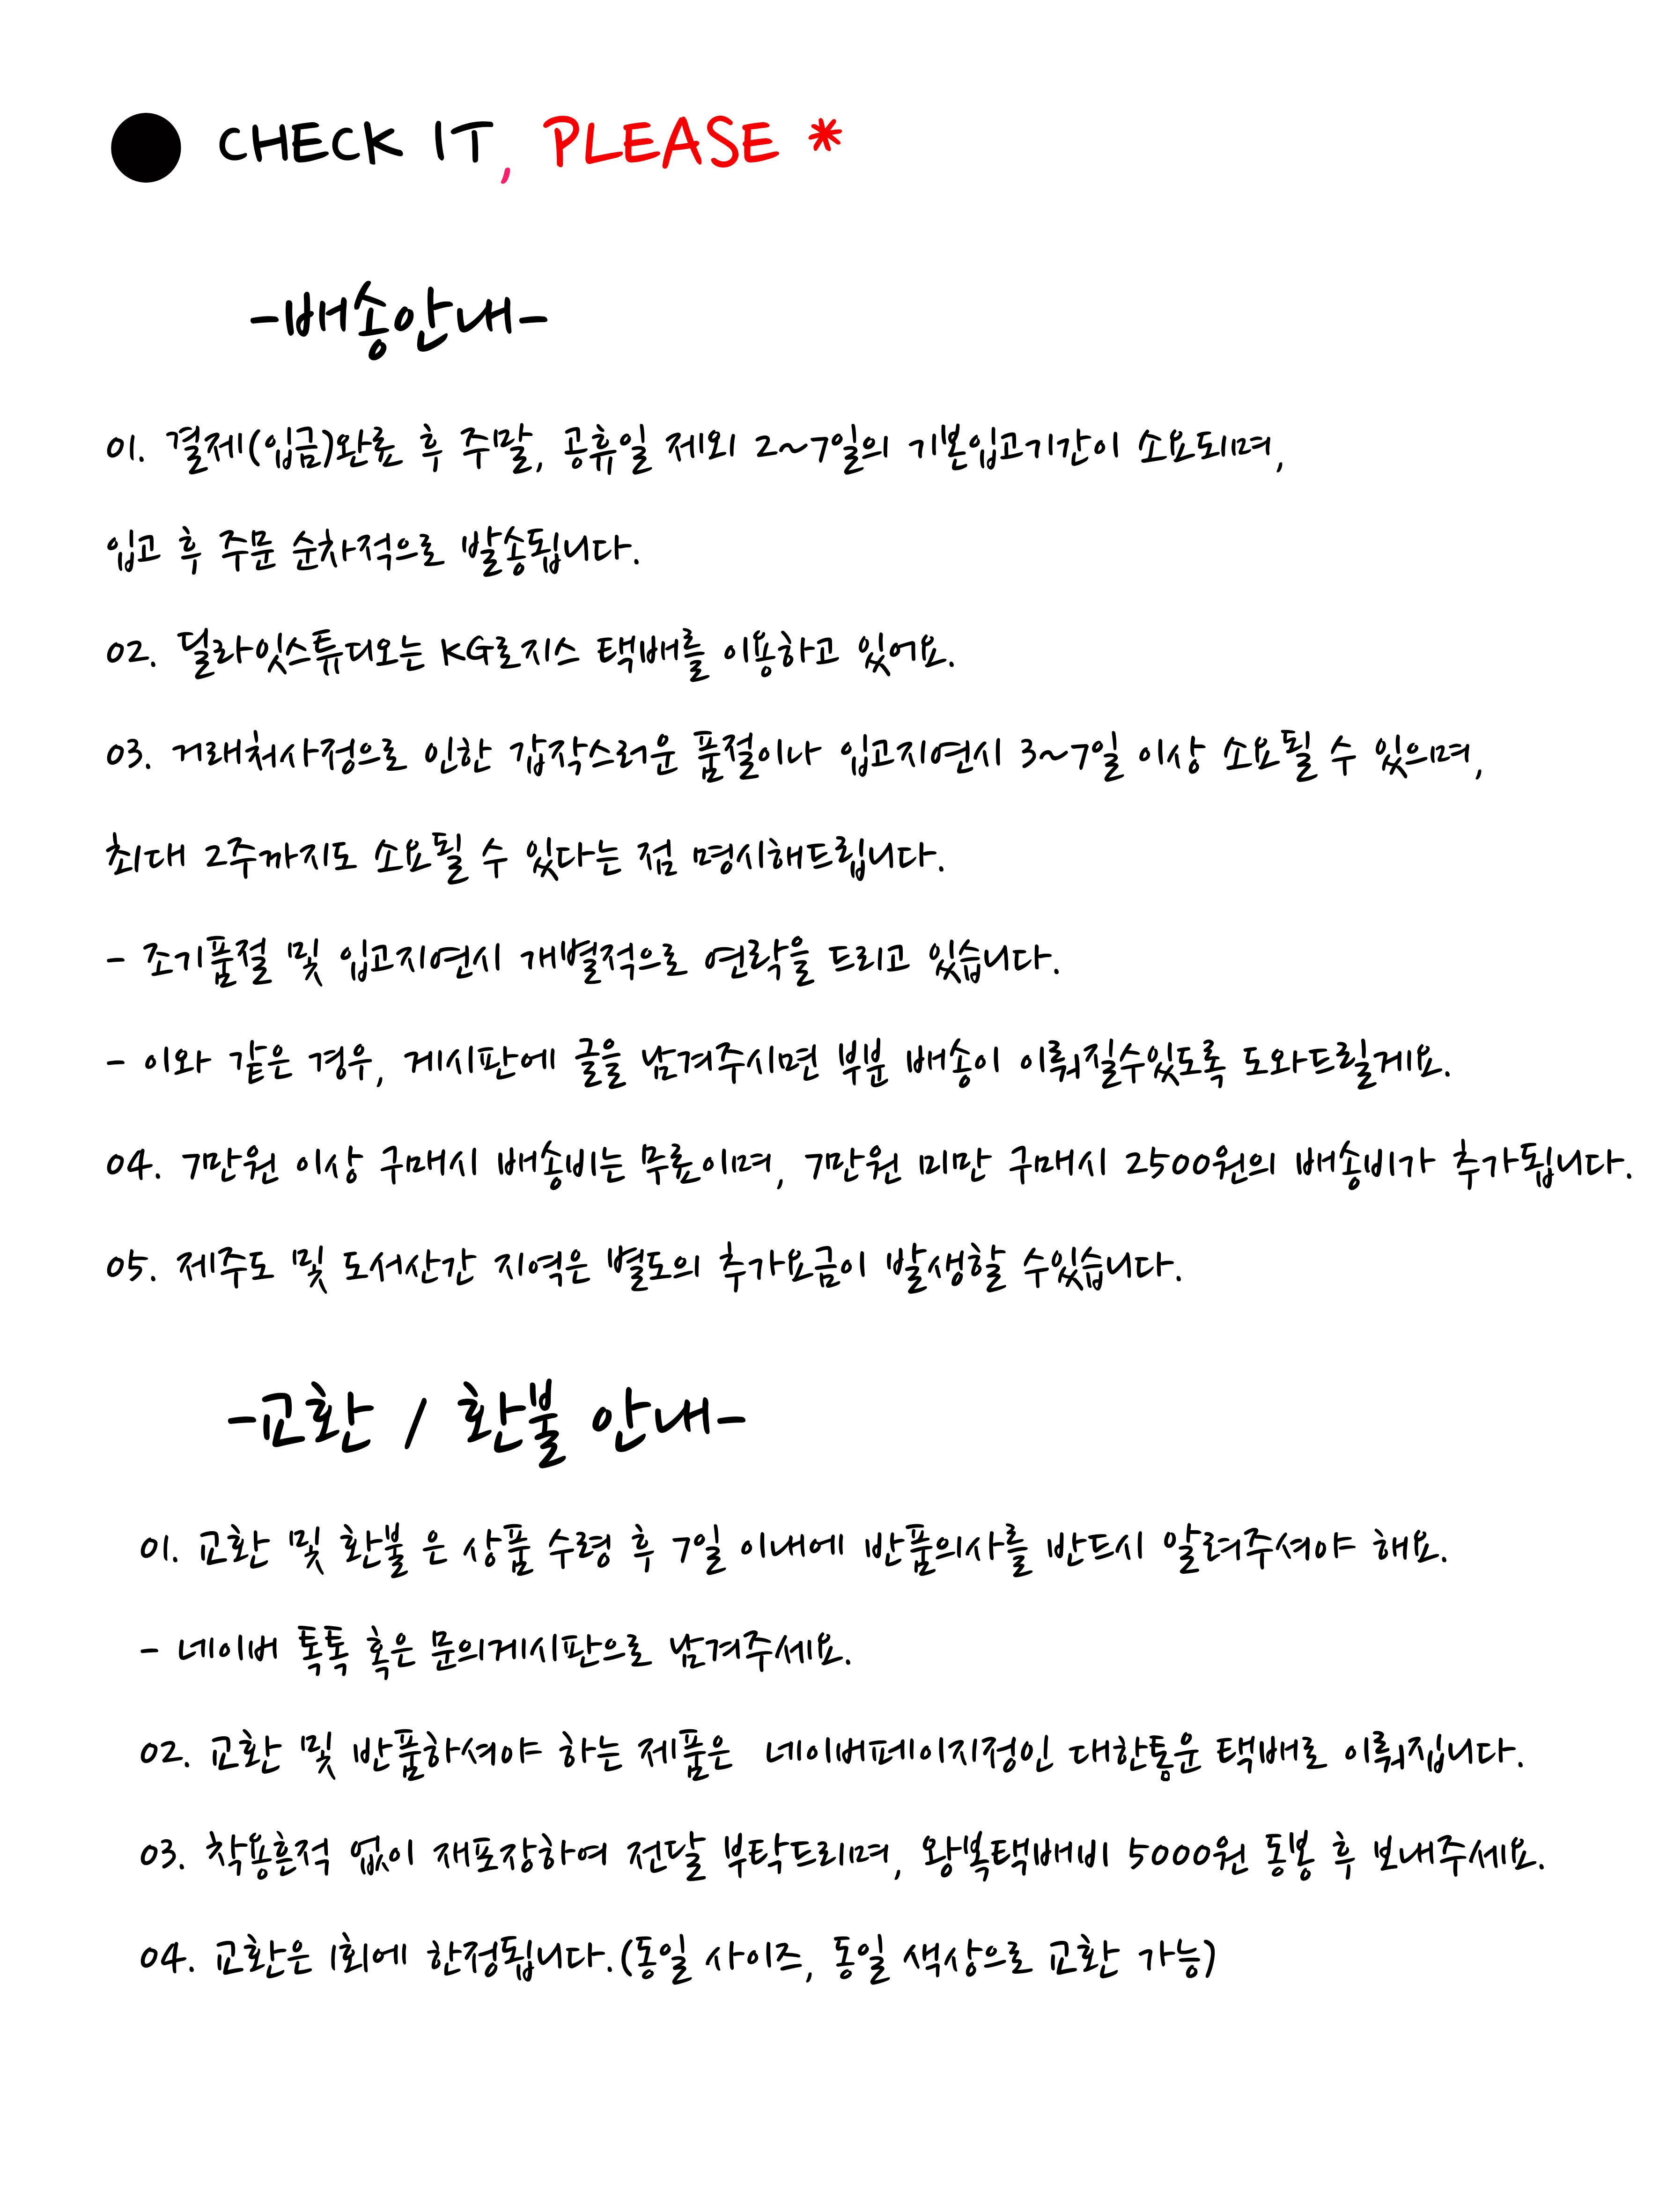 ● CHECK IT, PLEASE *
-배송안내-
01. 결제(입금)완료 후 주말, 공휴일 제외 2~7일의 기본입고기간이 소요되며,
입고 후 주문 순차적으로 발송됩니다.
02. 딜라잇스튜디오는 KG로지스 택배를 이용하고 있어요.
03. 거래처사정으로 인한 갑작스러운 품절이나 입고지연시 3~7일 이상 소요될 수 있으며,
최대 2주까지도 소요될 수 있다는 점 명시해드립니다.
- 조기품절 및 입고지연시 개별적으로 연락을 드리고 있습니다.
- 이와 같은 경우, 게시판에 글을 남겨주시면 부분 배송이 이뤄질수있도록 도와드릴게요.
04. 7만원 이상 구매시 배송비는 무료이며, 7만원 미만 구매시 2500원의 배송비가 추가됩니다.
05. 제주도 및 도서산간 지역은 별도의 추가요금이 발생할 수있습니다.
-교환 / 환불 안내-
01. 교환 및 환불 은 상품 수령 후 7일 이내에 반품의사를 반드시 알려주셔야 해요.
- 네이버 톡톡 혹은 문의게시판으로 남겨주세요.
02. 교환 및 반품하셔야 하는 제품은  네이버페이지정인 대한톰운 택배로 이뤄집니다.
03. 착용흔적 없이 재포장하여 전달 부탁드리며, 왕복택배비 5000원 동봉 후 보내주세요.
04. 교환은 1회에 한정됩니다.(동일 사이즈, 동일 색상으로 교환 가능)